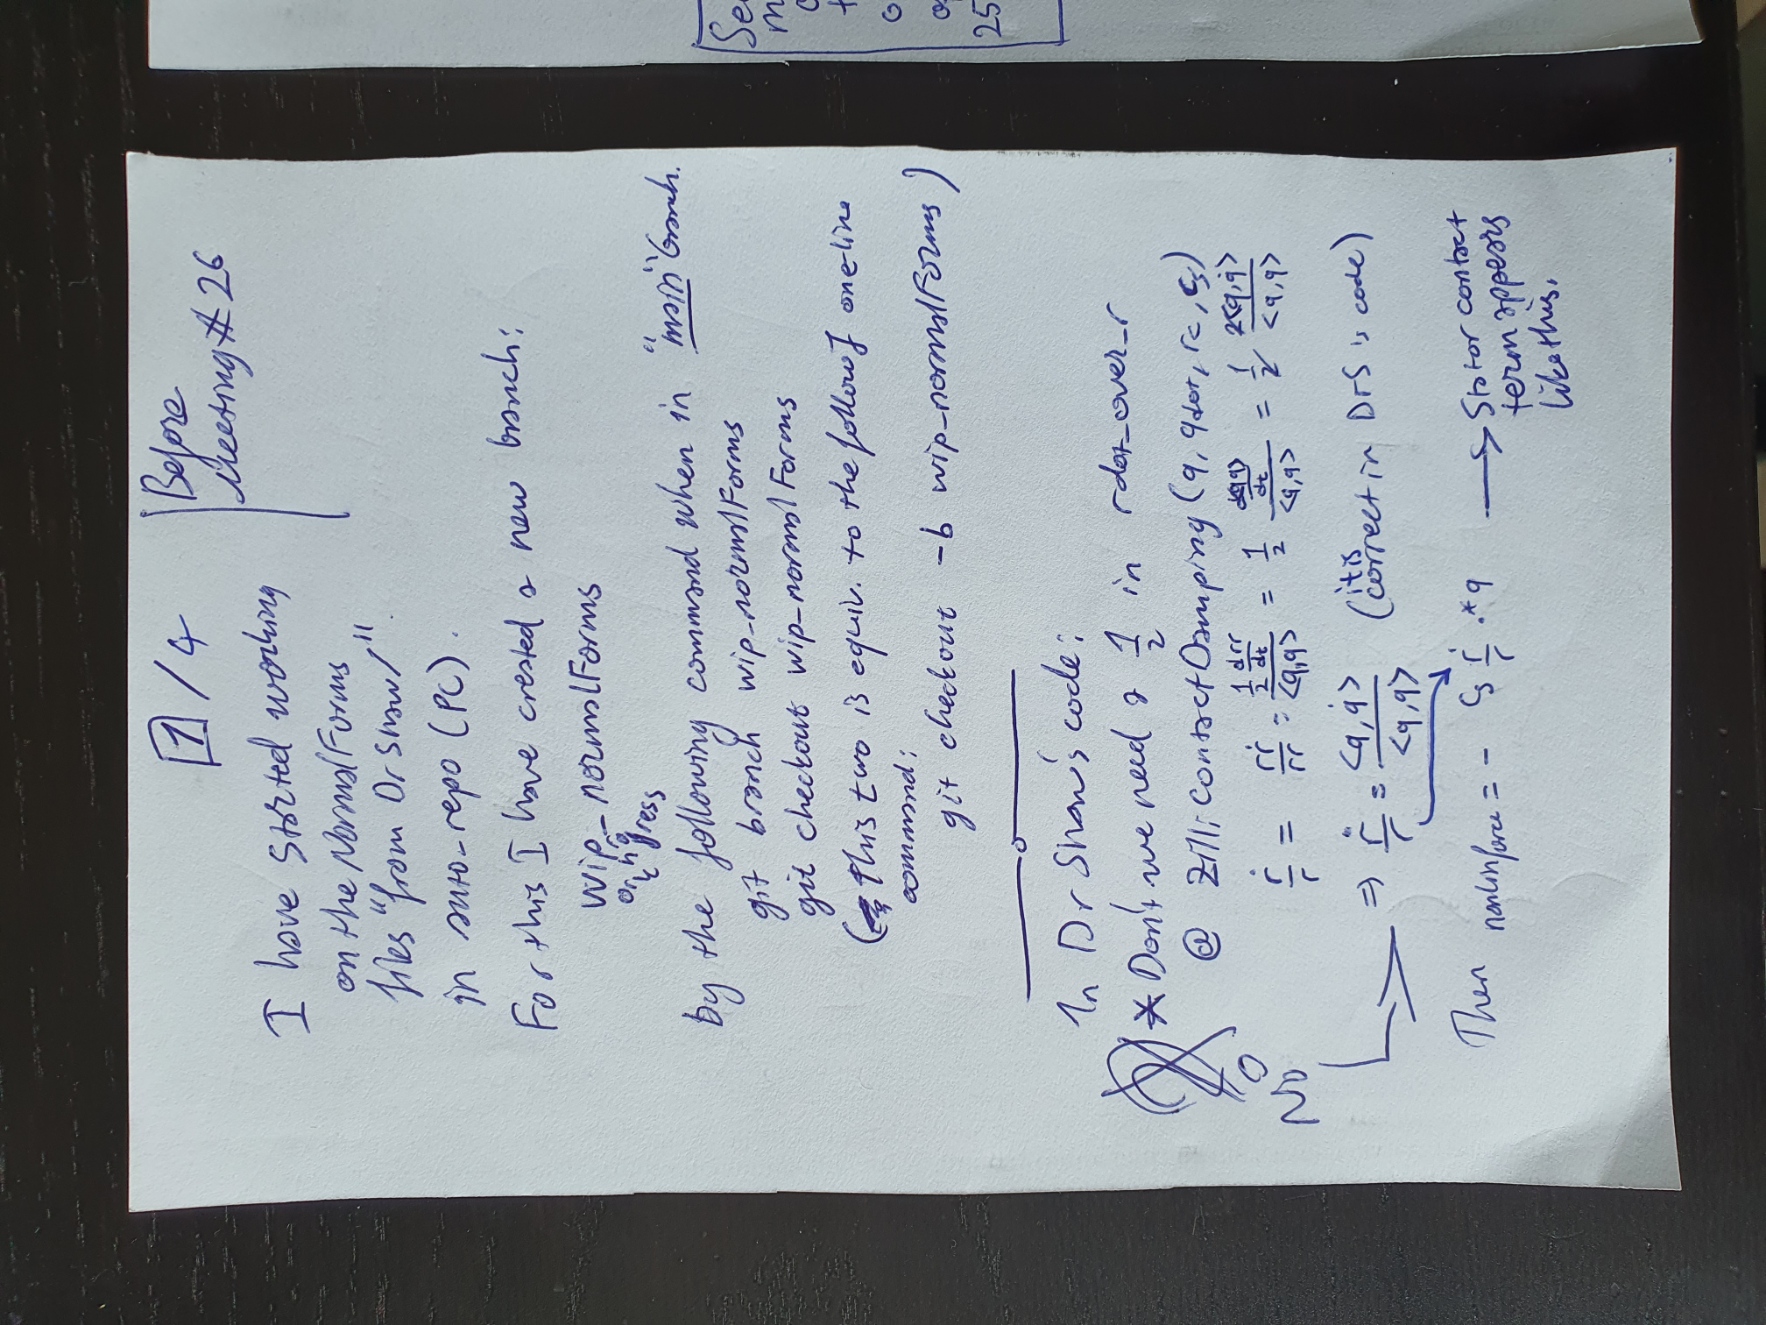 1 / 4
Before
Meeting # 26
I have started working
on the NormalForms
files "from Dr Shaw/"
in auto-repo (PC).
For this I have created a new branch:
wip_normalForms
ork in gress
by the following command when in "main" branch.
git branch wip_normalForms
git checkout wip_normalForms
(This two is equiv. to the follow one-line
command:
git checkout -b wip_normalForms)
In Dr Shaw's code:
* Don't we need a 1/2 in rdot_over_r
@ ZilliContactDamping (q, qdot, rc, cs)
ṙ/r = rṙ/rr = (1/2 drr/dt)/<q,q> = 1/2 (d<q,q>/dt)/<q,q> = 1/2 2<q,q̇>/<q,q>
No
⇒ ṙ/r = <q,q̇>/<q,q> (it is correct in DrS's code)
Then nonlinforce = - cs ṙ/r .*q → Stator contact
term appears
like this.
Se
m
o
25